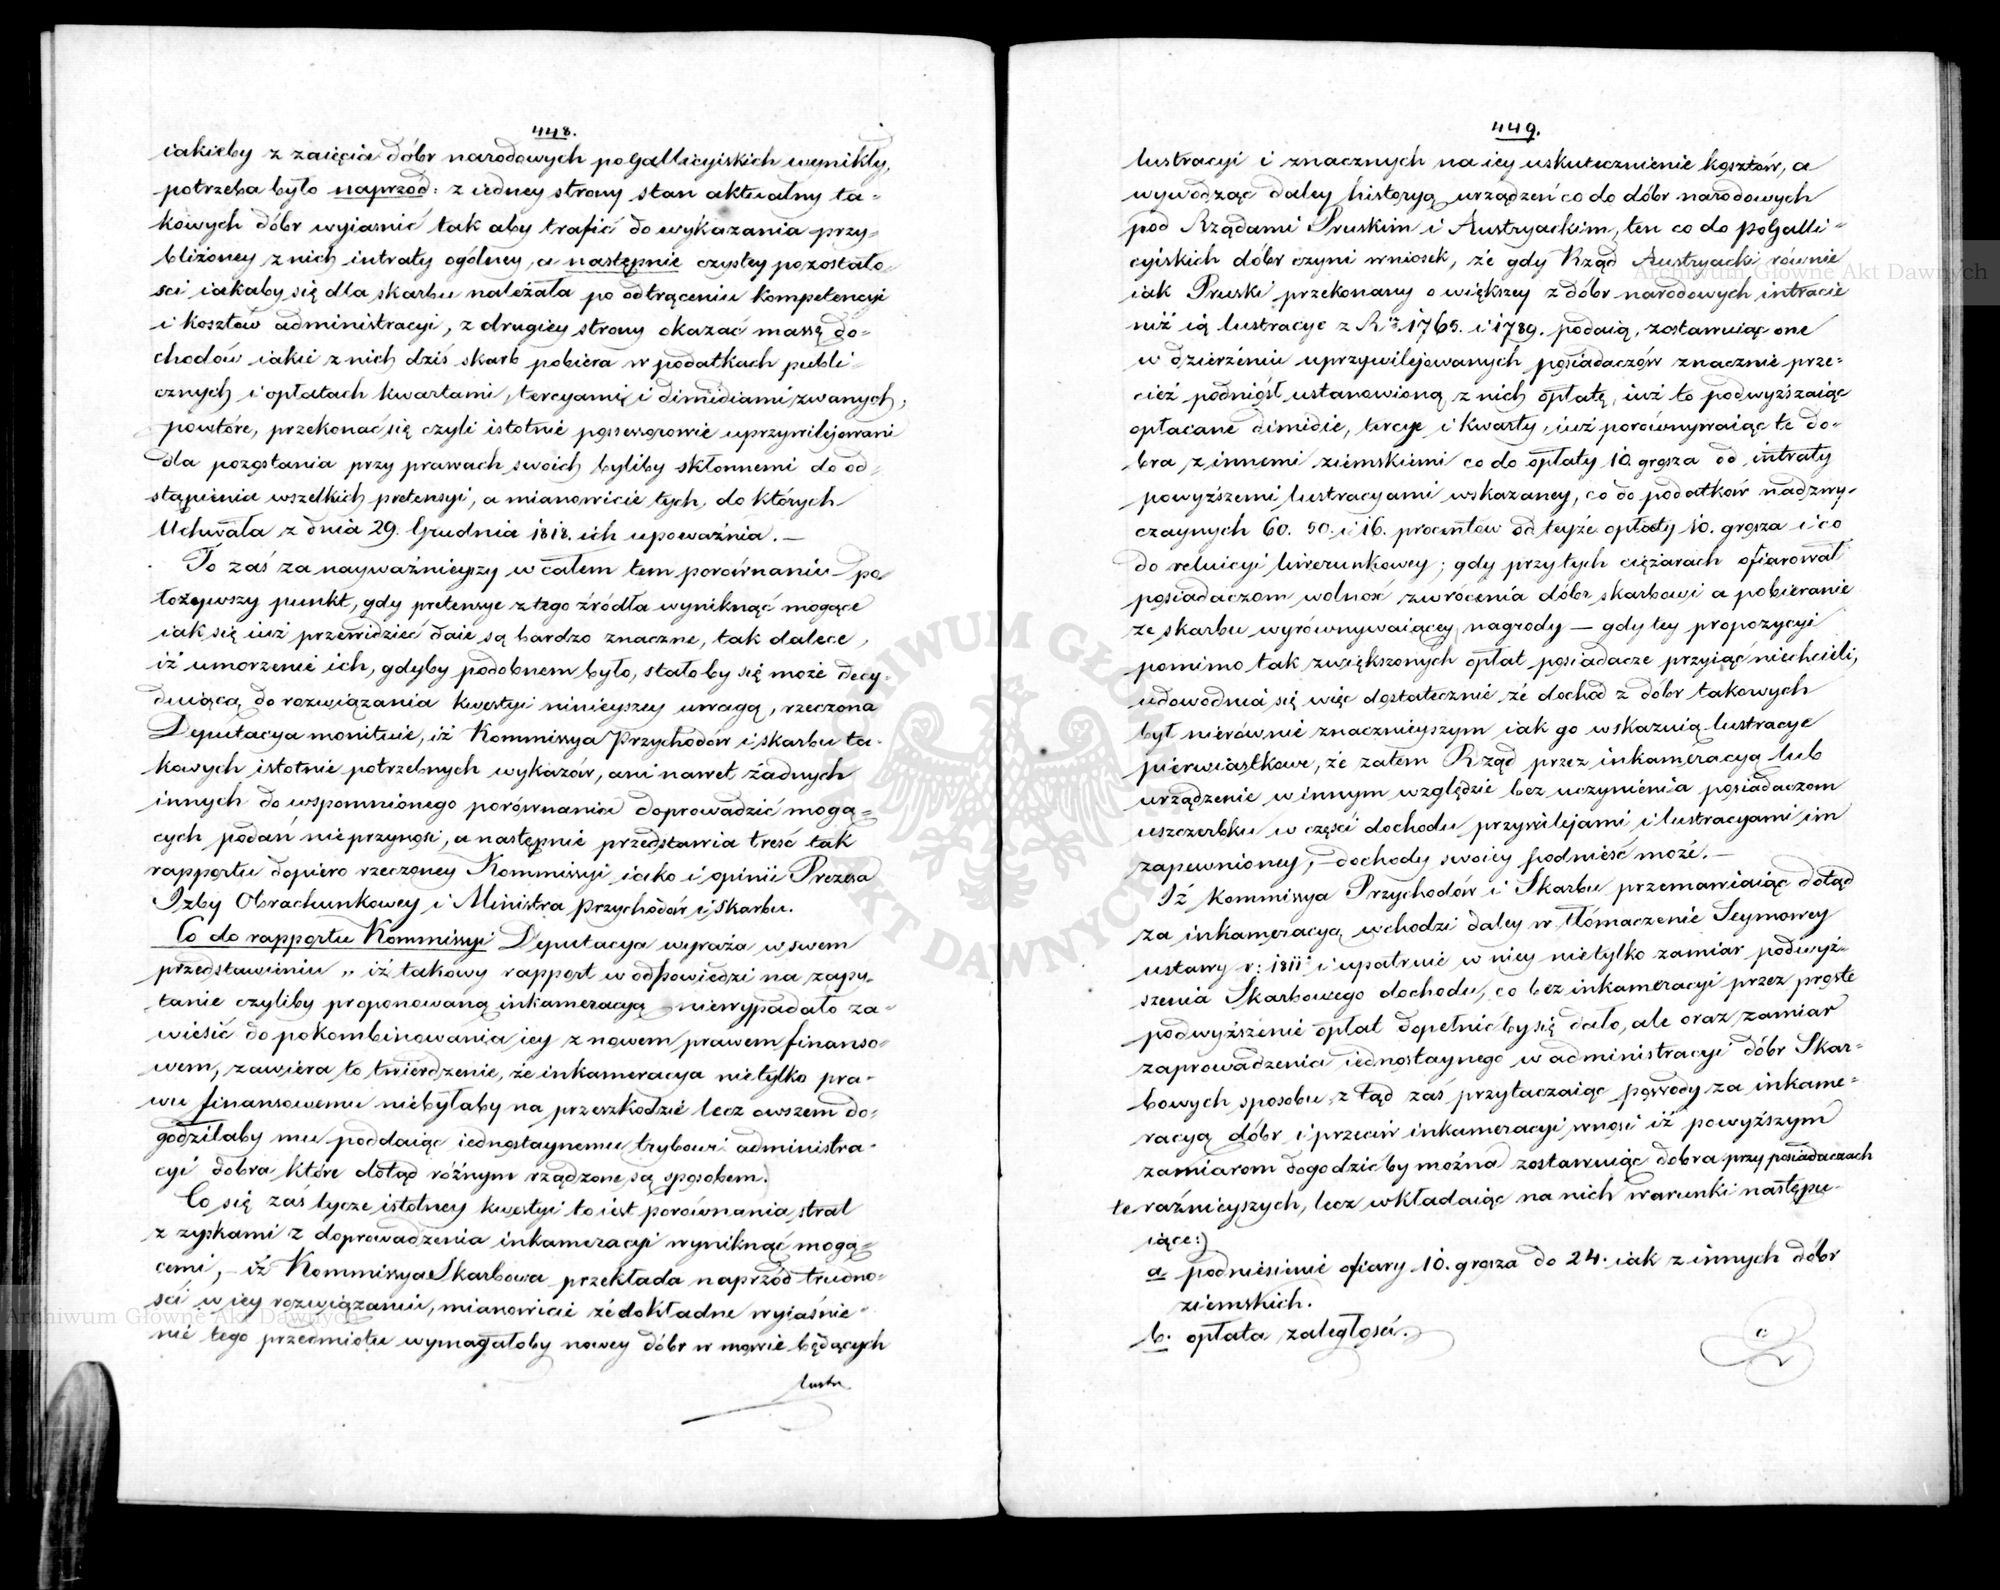 448.
iakieby z zaięcia dóbr narodowych pogallicyiskich wynikły,
potrzeba było naprzód: z iedney strony stan aktualny ta-
kowych dóbr wyiasnić tak aby trafić do wykazania przy-
bliżoney z nich intraty ogólney, a następnie czystey pozostało-
sci iakaby się dla skarbu należała po odtrąceniu kompetencyi
i kosztów administracyi, z drugiey strony okazać massę do-
chodów iakie z nich dziś skarb pobiera w podatkach publi-
cznych i opłatach kwartami, tercyami i dimidiami zwanych;
powtóre, przekonać się czyli istotnie possessorowie uprzywilejowani
dla pozostania przy prawach swoich byliby skłonnemi do od-
stąpienia wszelkich pretensyi, a mianowicie tych, do których
Uchwała z dnia 29. Grudnia 1818. ich upoważnia. —
To zaś za nayważnieyszy w całem tem porównaniu po-
łożywszy punkt, gdy pretensye z tego źródła wyniknąć mogące
iak się iuż przewidzieć daie są bardzo znaczne, tak dalece,
iż umorzenie ich, gdyby podobnem było, stałoby się może decy-
duiącą do rozwiązania kwestyi ninieyszey uwagą, rzeczona
Deputacya monituie, iż Kommissya Przychodów i Skarbu ta-
kowych istotnie potrzebnych wykazów, ani nawet żadnych
innych do wspomnionego porównania doprowadzić mogą-
cych podań nie przynosi, a następnie przedstawia treść tak
rapportu dopiero rzeczoney Kommissyi iako i opinii Prezesa
Izby Obrachunkowey i Ministra Przychodów i Skarbu.
Co do rapportu Kommissyi Deputacya wyraża w swem
przedstawieniu „ iż takowy rapport w odpowiedzi na zapy-
tanie czyliby proponowaną inkameracyą niewypadało za-
wiesić do pokombinowania iey z nowem prawem finanso-
wem, zawiera to twierdzenie, że inkameracya nietylko pra-
wu finansowemu niebyłaby na przeszkodzie lecz owszem do-
godziłaby mu poddaiąc iednostaynemu trybowi administra-
cyi dobra które dotąd różnym rządzone są sposobem.
Co się zas tycze istotney kwestyi to iest porównania strat
z zyskami z doprowadzenia inkameracyi wyniknąć mogą-
cemi, — iż Kommissya Skarbowa przekłada naprzód trudno-
ści w iey rozwiązaniu, mianowicie że dokładne wyiaśnie-
nie tego przedmiotu wymagałoby nowey dóbr w mowie będących
lustra
449.
lustracyi i znacznych na iey uskutecznienie kosztów, a
wywodząc daley historyą urządzeń co do dóbr narodowych
pod Rządami Pruskim i Austryackim, ten co do pogalli-
cyiskich dóbr czyni wniosek, że gdy Rząd Austryacki równie
iak Pruski przekonany o większey z dóbr narodowych intracie
niż ią lustracye z R. 1765. i 1789. podaią, zostawuiąc one
w dzierżeniu uprzywilejowanych posiadaczów znacznie prze-
cież podniósł ustanowioną z nich opłatę, iuż to podwyższaiąc
opłacane dimidie, tercye i kwarty, iuż porównywaiąc te do-
bra z innemi ziemskiemi co do opłaty 10. grosza od intraty
powyższemi lustracyami wskazaney, co do podatków nadzwy-
czaynych 60. 50. i 16. procentów od teyże opłaty 10. grosza i co
do reluicyi liwerunkowey; gdy przy tych ciężarach ofiarował
posiadaczom wolność zwrócenia dóbr skarbowi a pobieranie
ze skarbu wyrównywaiącey nagrody — gdy tey propozycyi
pomimo tak zwiększonych opłat posiadacze przyiąć niechcieli,
udowodnia się więc dostatecznie że dochod z dóbr takowych
był nierównie znacznieyszym iak go wskazuią lustracye
pierwiastkowe, że zatem Rząd przez inkameracyą lub
urządzenie w innym względzie bez uczynienia posiadaczom
uszczerbku w części dochodu przywilejami i lustracyami im
zapewnioney, — dochody swoiey podnieść może. —
Iż Kommissya Przychodów i Skarbu przemawiaiąc dotąd
za inkameracyą wchodzi daley w tłómaczenie Seymowey
ustawy r: 1811 i upatruie w niey nietylko zamiar podwyż-
szenia Skarbowego dochodu, co bez inkameracyi przez proste
podwyższenie opłat dopełnić by się dało, ale oraz zamiar
zaprowadzenia iednostaynego w administracyi dóbr Skar-
bowych sposobu, z tąd zaś przytaczaiąc powody za inkame-
racyą dóbr i przeciw inkameracyi wnosi iż powyższym
zamiarom dogodzić by można zostawuiąc dobra przy posiadaczach
teraźnieyszych, lecz wkładaiąc na nich warunki następu-
iące:
a podniesienie ofiary 10. grosza do 24. iak z innych dóbr
ziemskich.
b. opłata zaległości.
c
Archiwum Główne Akt Dawnych
Archiwum Główne Akt Dawnych
ARCHIWUM GŁÓWNE AKT DAWNYCH